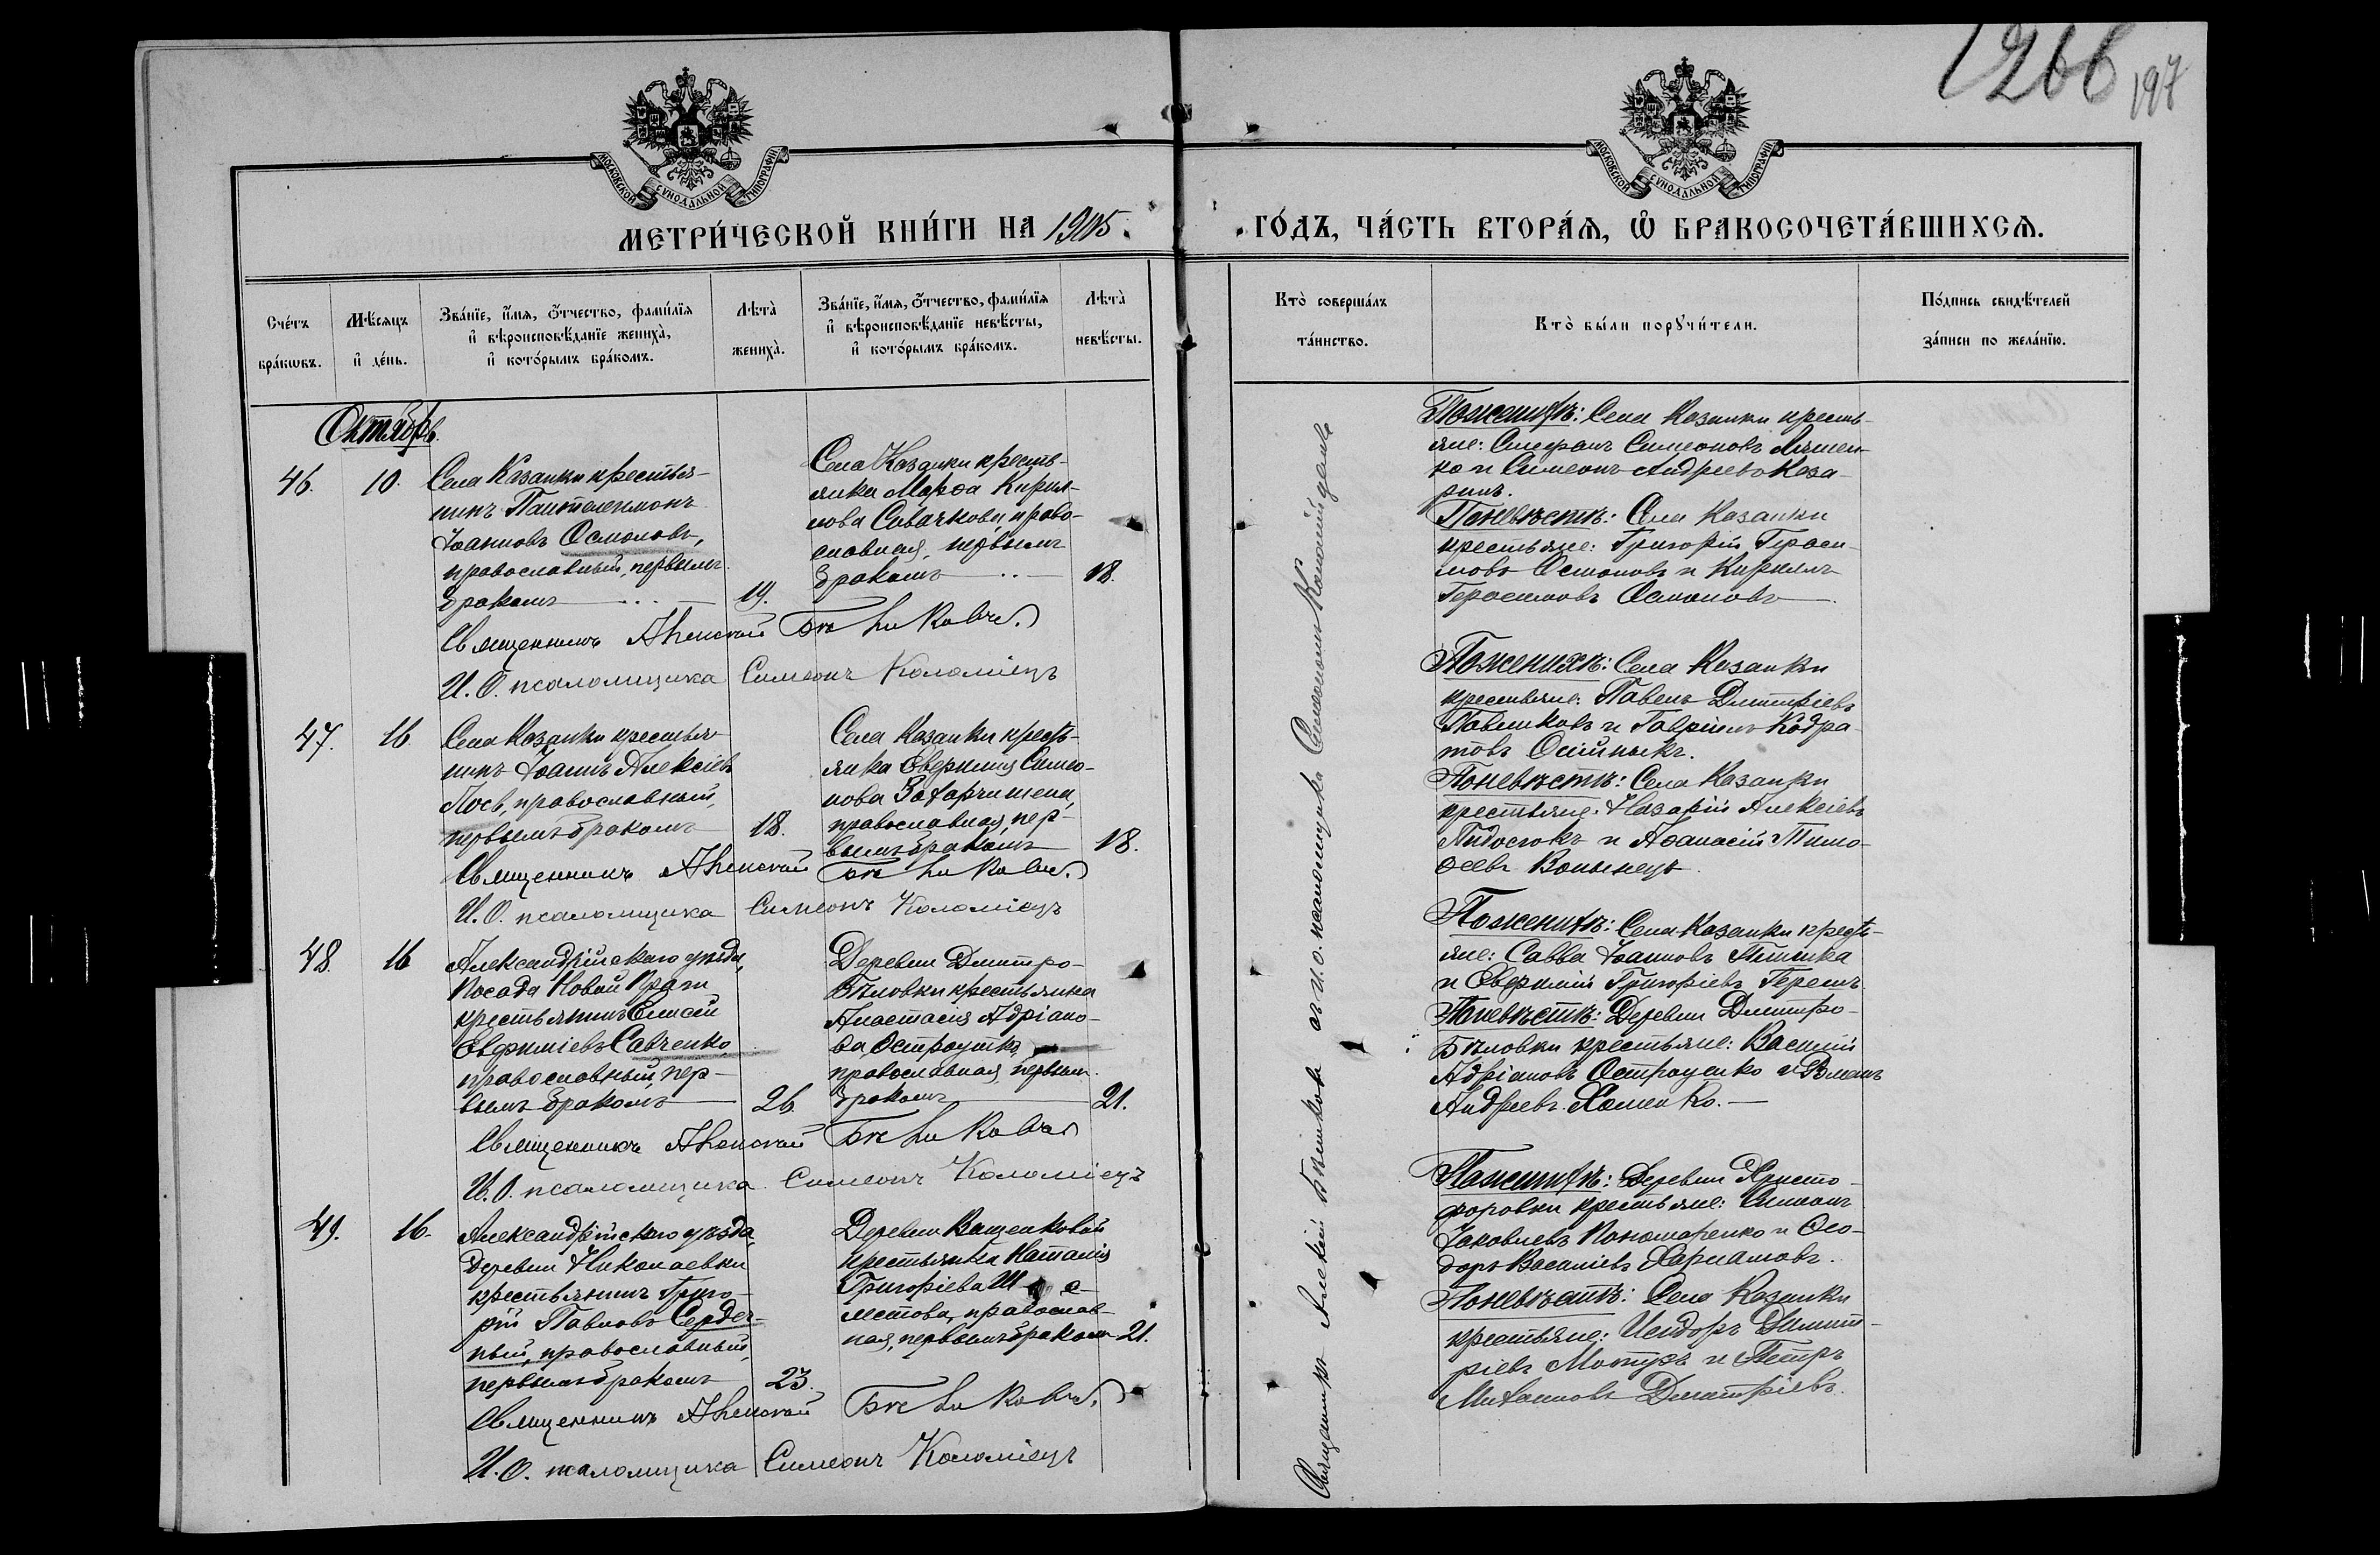 1266
197
МОСКОВСКОЙ СѴНОДАЛЬНОЙ ТИПОГРАФІИ
МЕТРИ́ЧЕСКОЙ КНИ́ГИ НА 1905.
Счéтъ
брáкѡвъ.
Мѣ́сяцъ
и҆ дéнь.
Звáнїе, и҆́мя, ѻ҆́тчество, фами́лїя
и҆ вѣроисповѣ́данїе женихà,
и҆ котóрымъ брáкомъ.
Лѣтà
женихà.
Звáнїе, и҆́мя, ѻ҆́тчество, фами́лїя
и҆ вѣроисповѣ́данїе невѣ́сты,
и҆ котóрымъ брáкомъ.
Лѣтà
невѣ́сты.
Октябрь.
46. 10.
Села Казанки крестья-
нинъ Пантелеимонъ
Іоанновъ Осмоловъ,
православный, первымъ
бракомъ 19.
Села Казанки кресть-
янка Марѳа Кирил-
лова Сивачкова, право-
славная, первымъ
бракомъ 18.
Священникъ Алексѣй Бѣликовъ.
И. О. псаломщика Симеонъ Коломіецъ
47. 16.
Села Казанки крестья-
нинъ Іоаннъ Алексіевъ
Лось, православный,
первымъ бракомъ 18.
Села Казанки кресть-
янка Евфимія Симео-
нова
православная, пер-
вымъ бракомъ 18.
Священникъ Алексѣй Бѣликовъ.
И. О. псаломщика Симеонъ Коломіецъ
48. 16
Александрійскаго уѣзда,
посада Новой Праги
крестьянинъ Елисей
Евфиміевъ Савченко,
православный, пер-
вымъ бракомъ 26.
Деревни Дмитро-
Бѣловки крестьянка
Анастасія Адріано-
ва Остроушко,
православная, первымъ
бракомъ 21.
Священникъ Алексѣй Бѣликовъ
И. О. псаломщика Симеонъ Коломіецъ
49. 16.
Александрійскаго уѣзда,
деревни Николаевки
крестьянинъ Григо-
рій Павловъ Сердеч-
ный, православный,
первымъ бракомъ 23.
Деревни Ващенковой
крестьянка Наталія
Григоріева
православ-
ная, первымъ бракомъ 21.
Священникъ Алексѣй Бѣликовъ.
И. О. псаломщика Симеонъ Коломіецъ
МОСКОВСКОЙ СѴНОДАЛЬНОЙ ТИПОГРАФІИ
ГÓДЪ, ЧÁСТЬ ВТОРÁЯ, Ѽ БРАКОСОЧЕТÁВШИХСЯ.
Ктò совершáлъ
тáинство.
Ктò бы́ли порꙋчи́тели.
Пóдпись свидѣ́телей
зáписи по желáнїю.
Священникъ Алексій Бѣликовъ съ и. о. псаломщика Симеономъ Коломійцемъ
По женихѣ: Села Казанки кресть-
яне: Стефанъ Симеоновъ Ляшен-
ко и Симеонъ Андреевъ Каза-
ринъ.
По невѣстѣ: Села Казанки
крестьяне: Григорій Гераси-
мовъ Осмоловъ и Кириллъ
Герасимовъ Осмоловъ.
По женихѣ: Села Казанки
крестьяне: Павелъ Дмитріевъ
Павликовъ и Гавріилъ Кодра-
товъ Олійныкъ.
По невѣстѣ: Села Казанки
крестьяне: Назарій Алексіевъ
и Аѳанасій Тимо-
ѳеевъ Волынецъ.
По женихѣ: Села Казанки кресть-
яне: Савва Іоанновъ
и Евфимій Григоріевъ
По невѣстѣ: Деревни Дмитро-
Бѣловки крестьяне: Василій
Адріановъ Остроушко и Романъ
Андреевъ Хоменко.
По женихѣ: Деревни Христо-
форовки крестьяне: Симеонъ
Іаковлевъ Пономаренко и Ѳео-
доръ Василіевъ Харламовъ.
По невѣстѣ: Села Казанки
крестьяне: Исидоръ Димит-
ріевъ Мотузъ и Петръ
Михаиловъ Дмитріевъ.